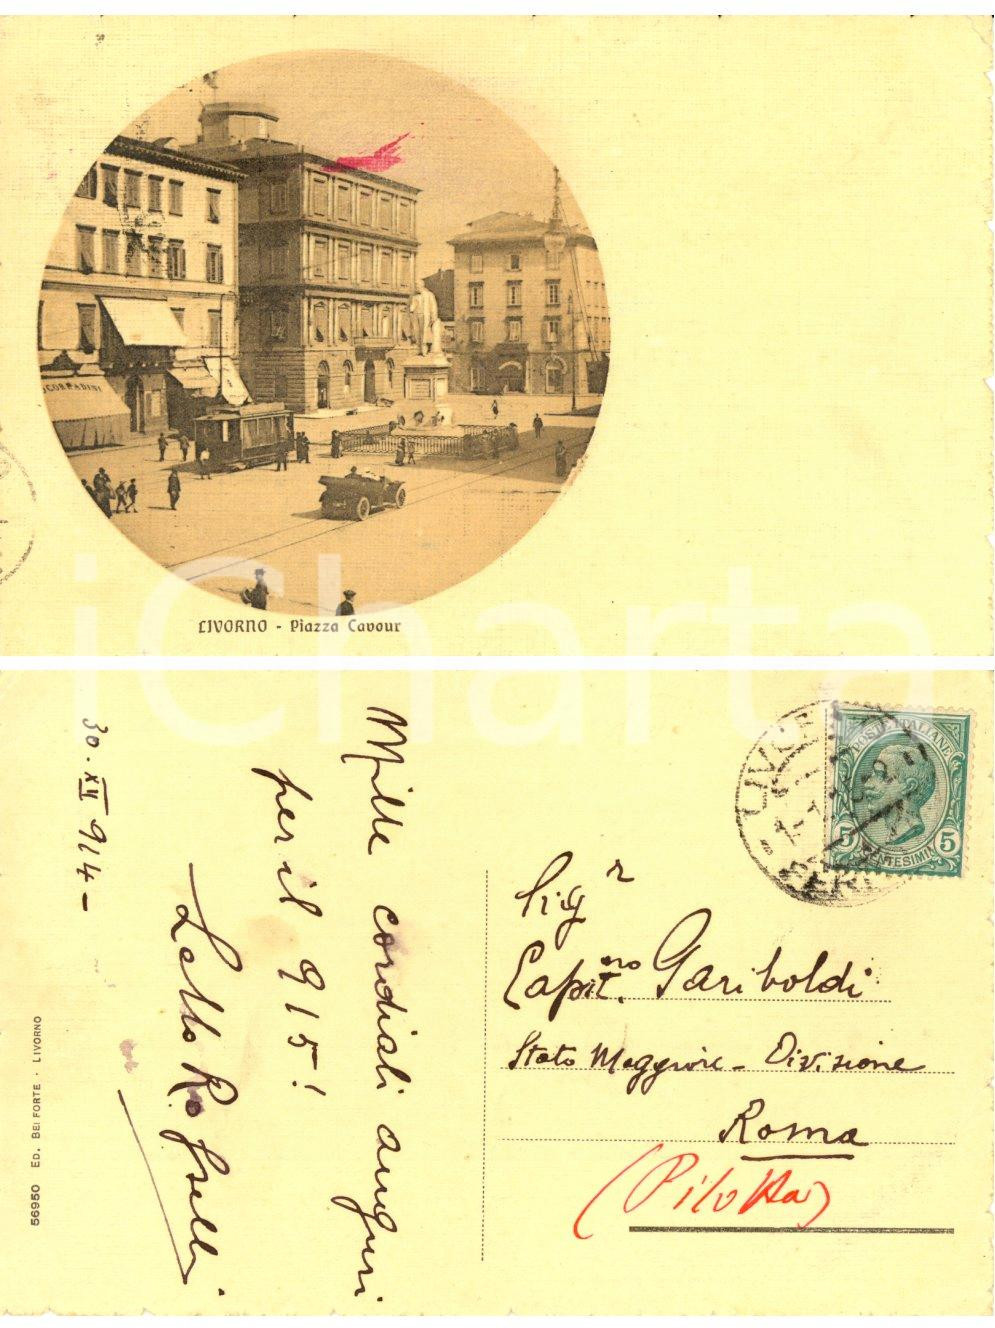 CORRADINI
LIVORNO - Piazza Cavour
iCharta
30. XII 914 -
Mille cordiali auguri
per il 915!
56950 ED. BELFORTE - LIVORNO
POSTE ITALIANE
5 CENTESIMI 5
LIVORNO
Sigr
Capit.no Gariboldi
Stato Maggiore - Divisione
Roma
(Pilotta)